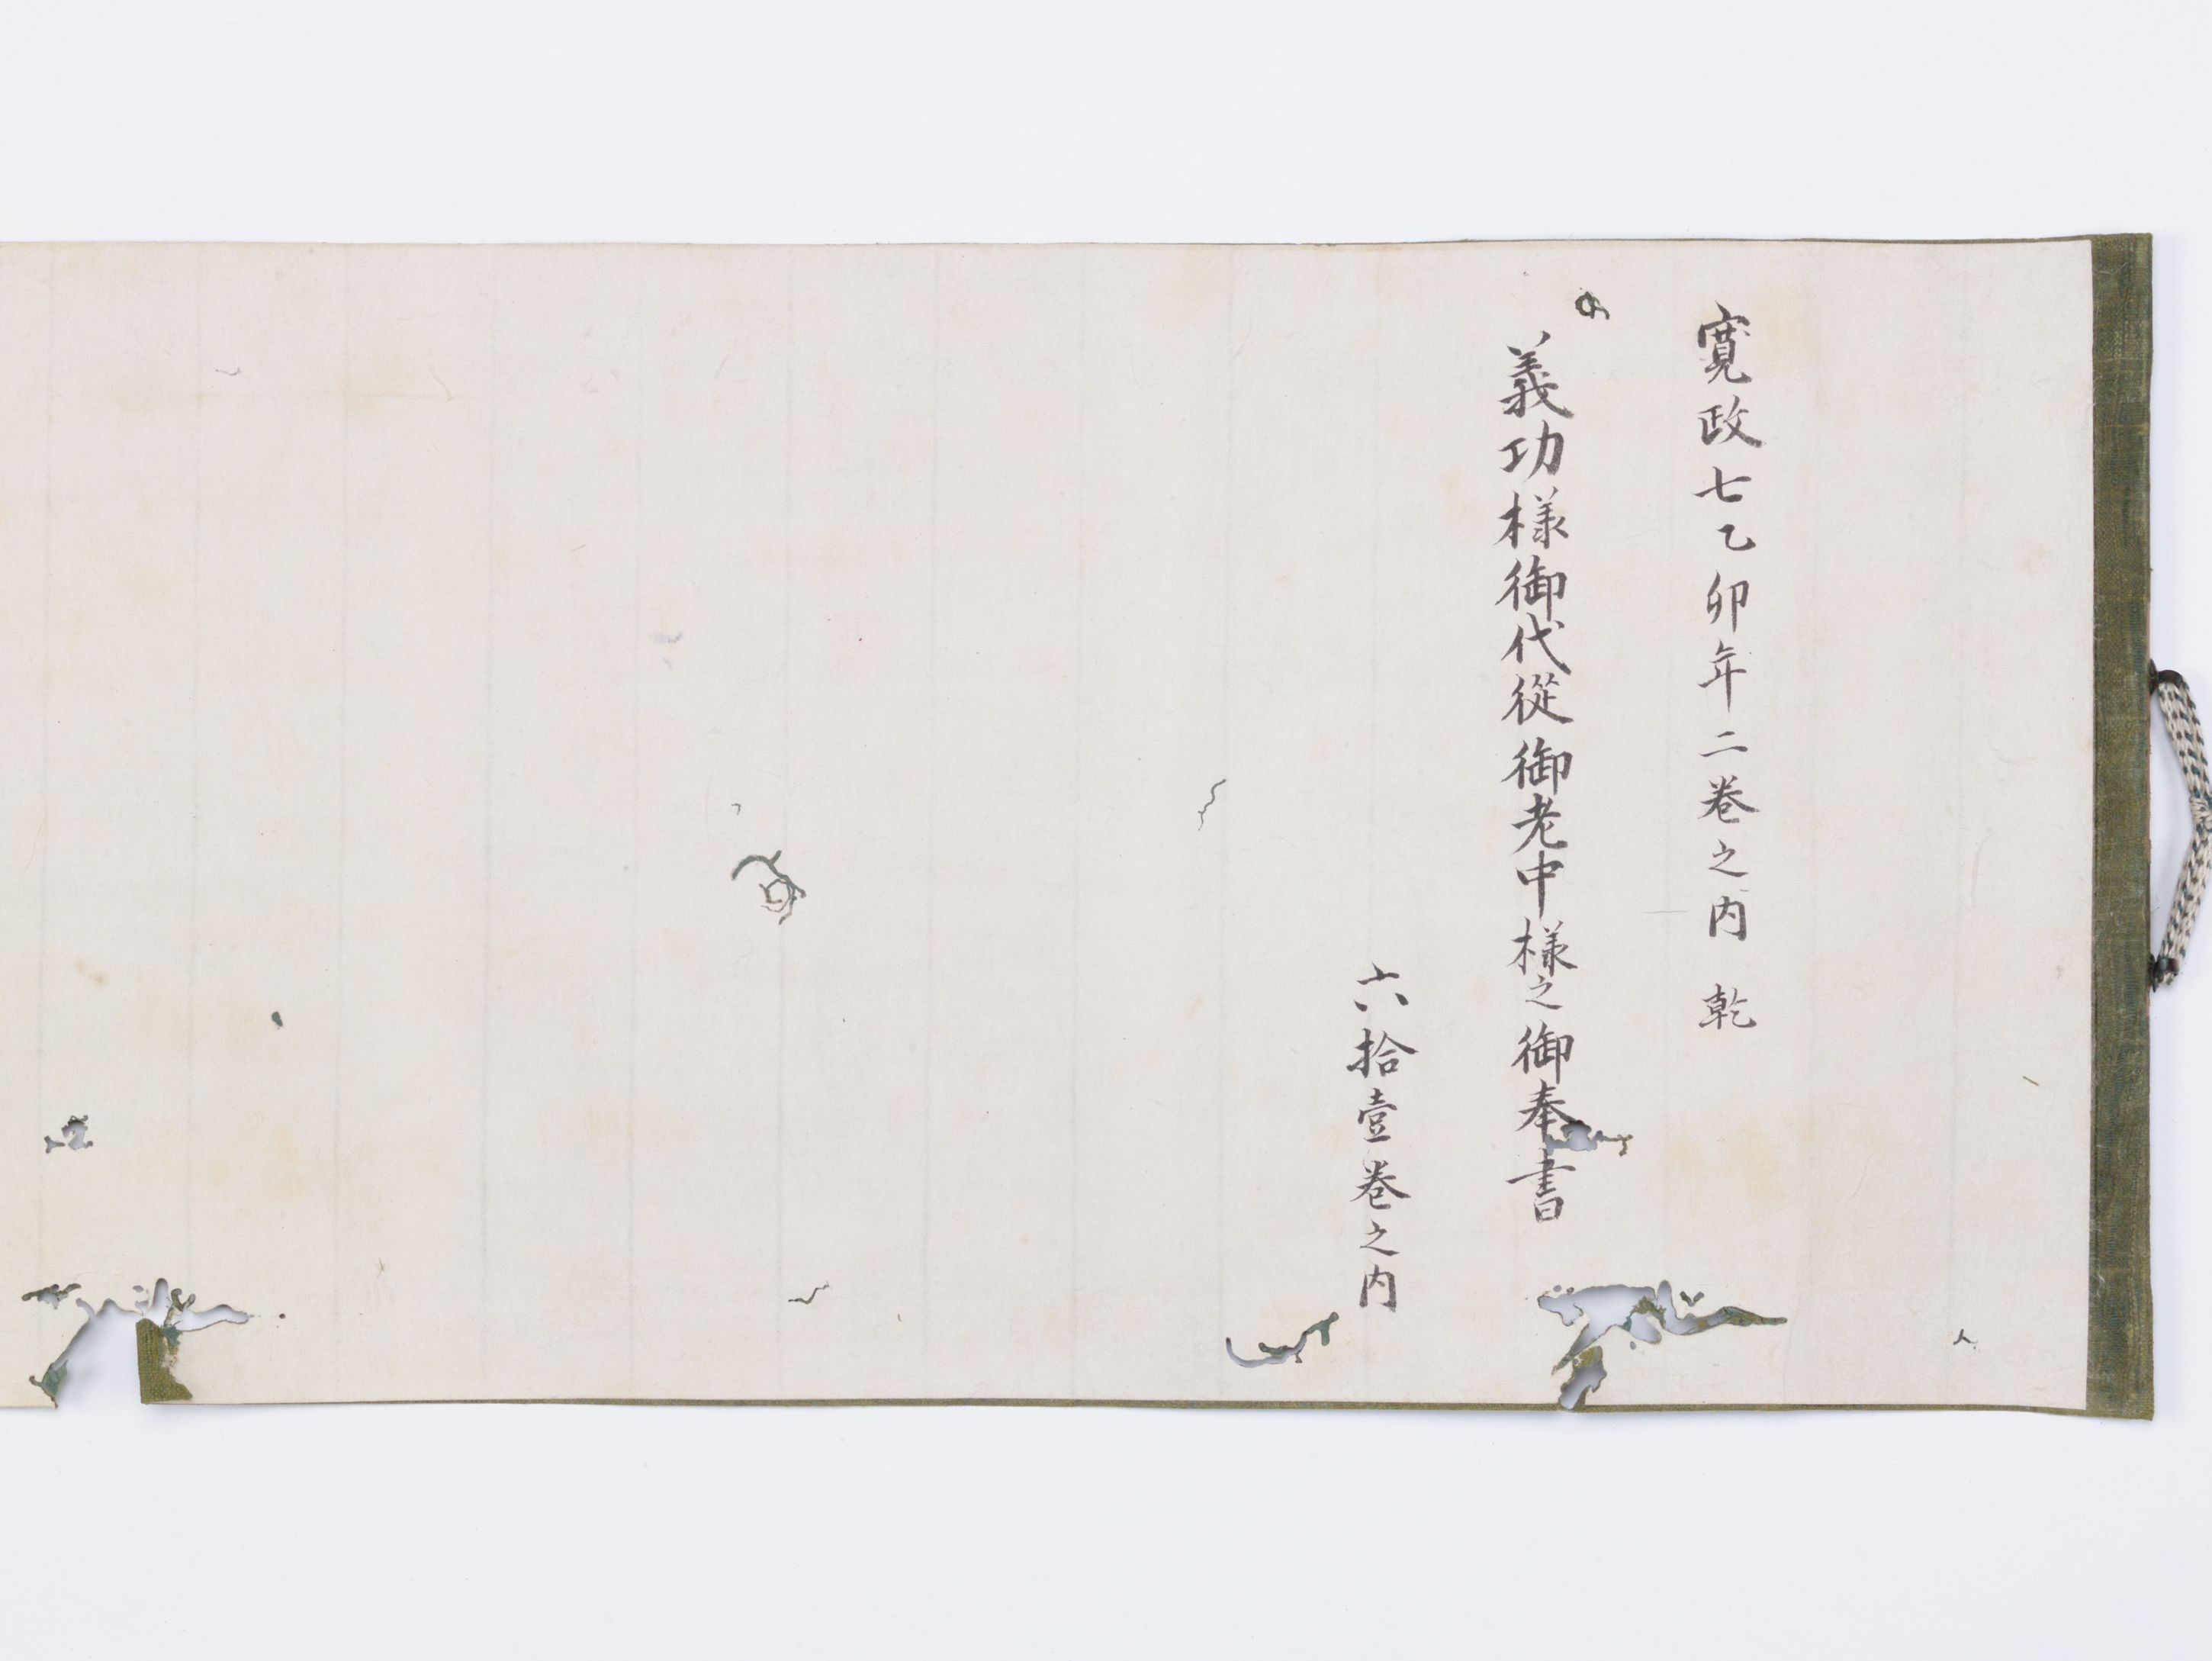 寛政七乙卯年二巻之内　乾
義功様御代従御老中様之御奉書
六拾壹巻之内